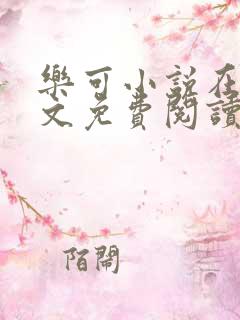 樂可小說在
文免費閱讀
陌鬧